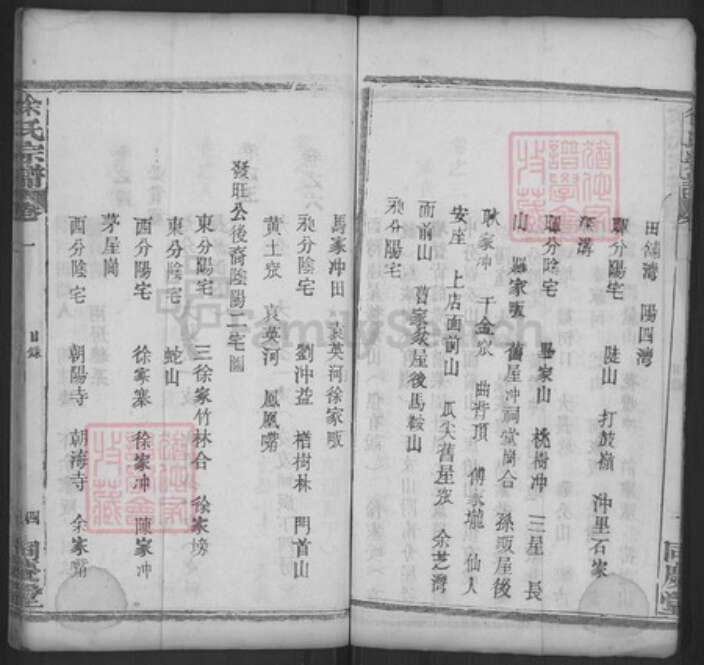 田舖灣 陽四灣
聯分陽宅 陡山 打鼓嶺 沖里石家
灣
聯分陰宅 畢家山 桃樹冲 三星 長
山 羅家畈 舊屋冲祠堂崗合 孫畈屋後
耿家冲 于金家 曲背頂 傅家壠 仙人
安座 上店面前山 瓜尖舊屋家 余芝灣
面前山 舊家家屋後馬鞍山
分陽宅
馬家冲田 袁英河徐家畈
分陰宅 劉沖益 楢樹林 門首山
黃土家 袁英河 鳳凰嘴
發旺公後裔陰陽二宅圖
東分陽宅 三徐家竹林合 徐家塝
東分陰宅 蛇山
西分陽宅 徐家寨 徐家冲 陳家冲
茅屋崗
西分陰宅 朝陽寺 朝海寺 余家嘴
徐氏宗譜 卷一 目錄 四 同慶堂
同慶堂
FamilySearch